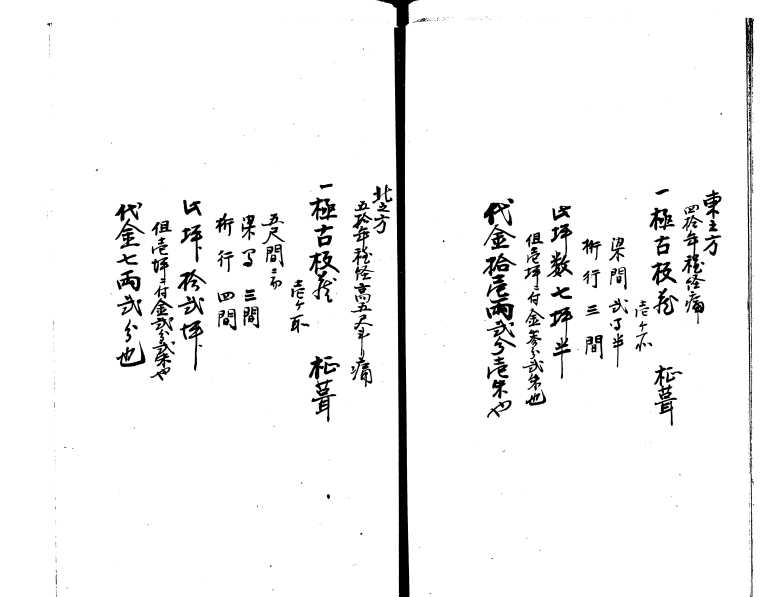 東之方
四拾年程経痛
一極古板蔵
壱ケ所
柾葺
梁間弐間半
桁行三間
此坪数七坪半
但壱坪ニ付金壱分弐朱也
代金拾壱両弐分壱朱也
北之方
五拾年程経高五尺斗リ痛
一極古板蔵
壱ケ所
柾葺
五尺間ニ而
梁間三間
桁行四間
此坪拾弐坪
但壱坪ニ付金弐分弐朱也
代金七両弐分也